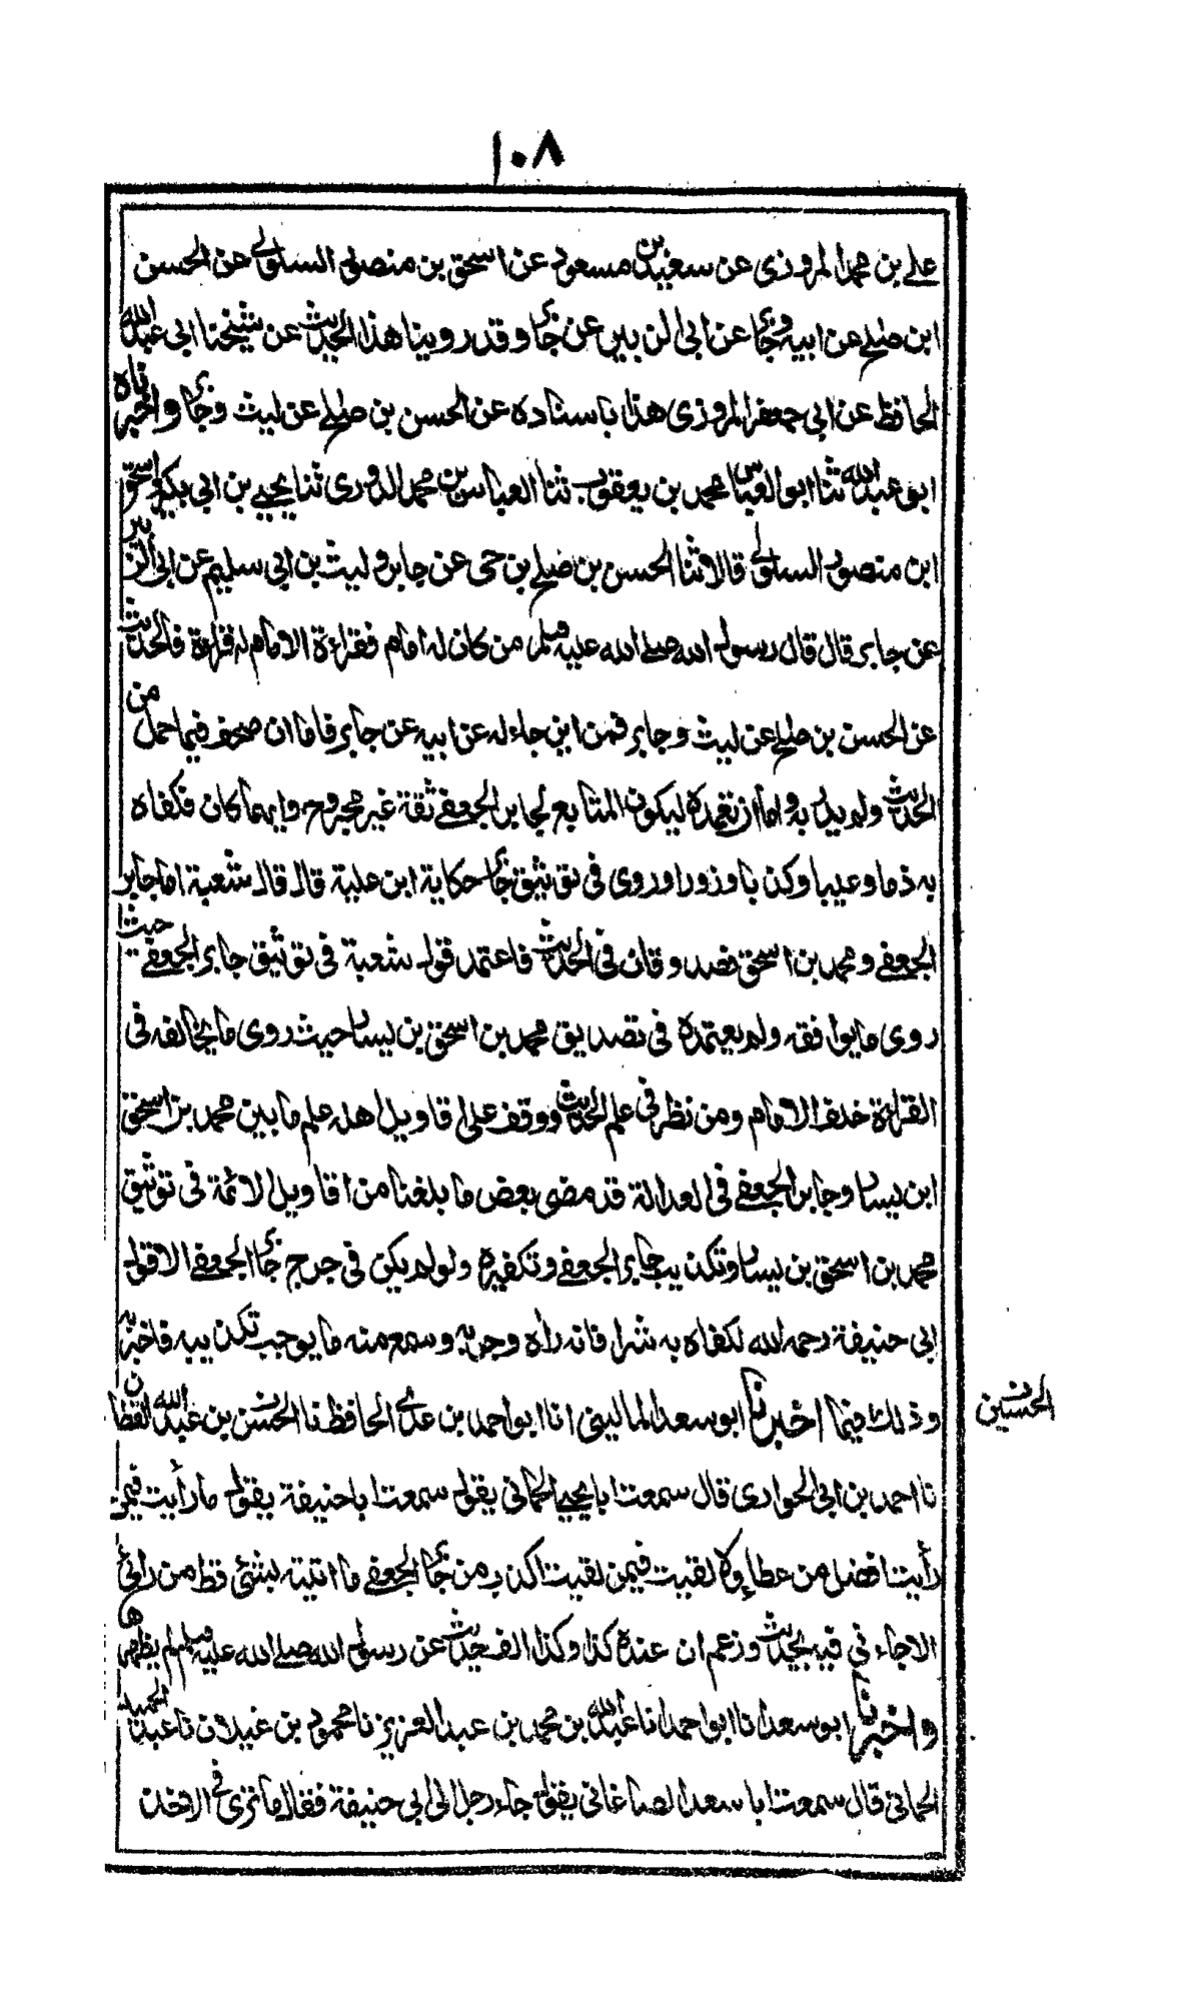 ١٠٨
علي بن محمد المروزي عن سعيد بن مسعود عن اسحق بن منصور السلولي عن الحسن
ابن صلح عن ابيه وجابر عن ابي الزبير عن جابر وقد روينا هذا الحديث عن شيخنا ابي عبد الله
الحافظ عن ابي جعفر المروزي هذا باسناده عن الحسن بن صلح عن ليث وجابر واخبرناه
ابو عبد الله ثنا ابو العباس محمد بن يعقوب ثنا العباس بن محمد الدوري ثنا يحيى بن ابي بكير واسحق
ابن منصور السلولي قالا ثنا الحسن بن صلح بن حي عن جابر وليث بن ابي سليم عن ابي الزبير
عن جابر قال قال رسول الله صلى الله عليه وسلم من كان له امام فقراءة الامام له قراءة فالحديث
عن الحسن بن صلح عن ليث وجابر فمن اين جاء له عن ابيه عن جابر فاما ان صحف فيما حمل من
الحديث ولم يدل به واما ان تعمده ليكون المتابع لجابر الجعفي ثقة غير مجروح وايهما كان فكفاه
به ذما وعيبا وكذبا وزورا وروى في توثيق جابر حكاية ابن علية قال قال شعبة اما جابر
الجعفي ومحمد بن اسحق فصدوقان في الحديث فاعتمد قول شعبة في توثيق جابر الجعفي حيث
روى ما يوافقه ولم يعتمده في تصديق محمد بن اسحق بن يسار حيث روى ما يخالفه في
القراءة خلف الامام ومن نظر في علم الحديث ووقف على اقاويل اهله علم ما بين محمد بن اسحق
ابن يسار وجابر الجعفي في العدالة قد مضى بعض ما بلغنا من اقاويل الائمة في توثيق
محمد بن اسحق بن يسار وتكذيب جابر الجعفي وتكفيره ولو لم يكن في جرح جابر الجعفي الا قول
ابي حنيفة رحمه الله لكفاه به شرا فانه راه وجربه وسمع منه ما يوجب تكذيبه فاخبر به
وذلك فيما اخبرنا ابو سعد الماليني انا ابو احمد بن عدي الحافظ نا الحسن بن عبد الله القطان
الحسين
نا احمد بن ابي الحواري قال سمعت ابا يحيى الحماني يقول سمعت ابا حنيفة يقول ما رأيت فيمن
رأيت افضل من عطاء ولا لقيت فيمن لقيت اكذب من جابر الجعفي ما اتيته بشئ قط من رائي
الا جاءني فيه بحديث وزعم ان عنده كذا وكذا الف حديث عن رسول الله صلى الله عليه وسلم لم يظهرها
واخبرنا ابو سعد انا ابو احمد انا عبد الله بن محمد بن عبد العزيز نا محمود بن غيلان نا عبد الحميد
الحماني قال سمعت ابا سعد الصاغاني يقول جاء رجل الى ابي حنيفة فقال ما ترى في الاخذ